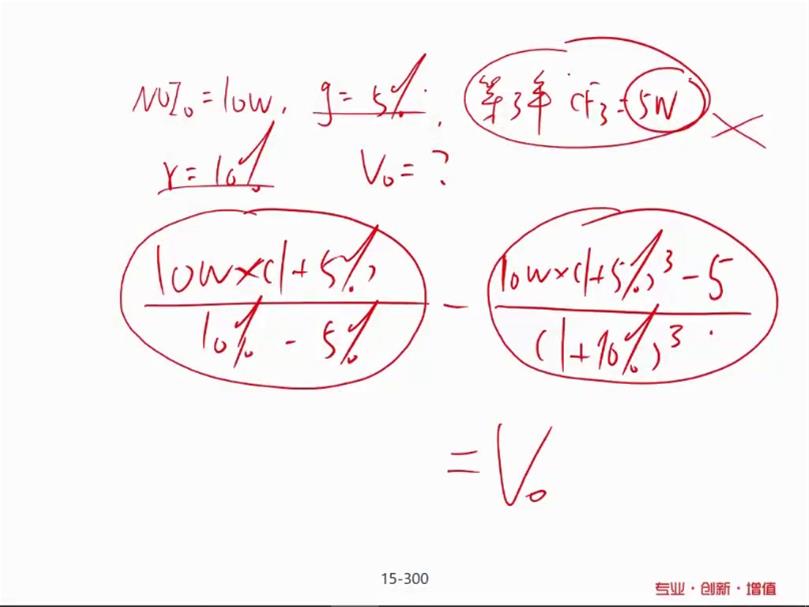 NOI₀ = 10W, g = 5%, 第3年 CF₃ = 5W
r = 10% V₀ = ?
10W×(1+5%) / 10% - 5% - 10W×(1+5%)³ - 5 / (1+10%)³
= V₀
15-300
专业·创新·增值